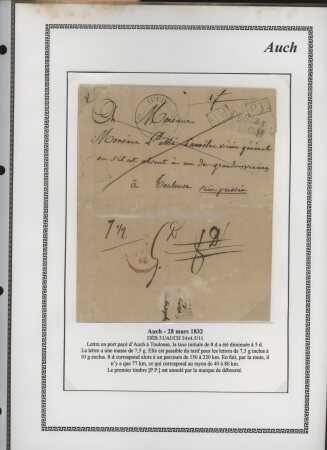 Auch
AUCH
P.P.
De Monsieur
Monsieur L'abbé vicaire général
ou s'il est absent à un des grands vicaires
à Toulouse très pressée
7 1/2
5 D
8 D
Auch - 28 mars 1832
DÉB.31/AUCH 24x4,5/11
Lettre en port payé d'Auch à Toulouse, la taxe initiale de 8 d a été diminuée à 5 d.
La lettre a une masse de 7,5 g. Elle est passible du tarif pour les lettres de 7,5 g inclus à
10 g exclus. 8 d correspond alors à un parcours de 150 à 220 km. En fait, par la route, il
n'y a que 77 km, ce qui correspond au rayon de 40 à 80 km.
Le premier timbre [P.P.] est annulé par la marque de déboursé.